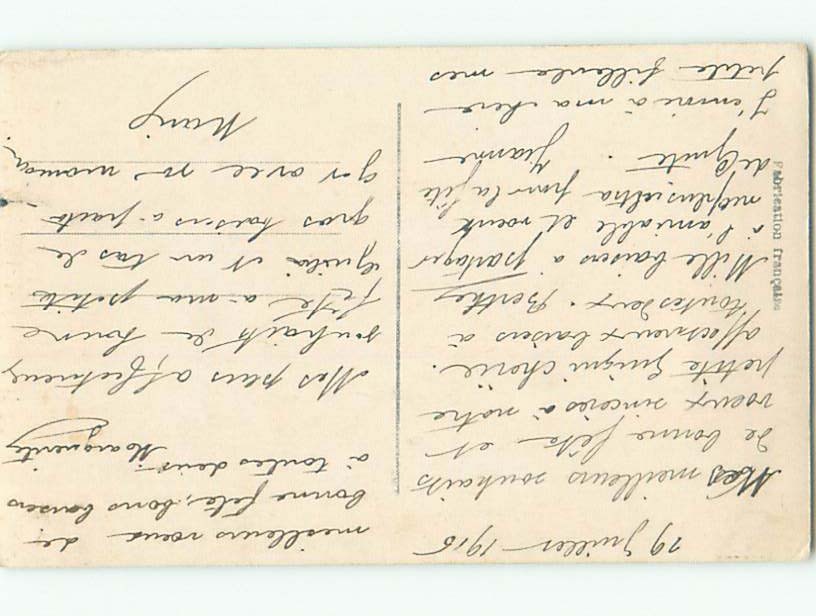 29 Juillet 1915
Mes meilleurs souhaits
de bonne fête et
voeux sincères à notre
petite Guigui chérie.
affectueux baisers à
toutes deux. Berthe
Mille baisers à partager
à l'amiable et voeux
nec plus ultra pour la fête
de Guite. Jeanne
J'envoie à ma chère
petite filleule mes
meilleurs voeux de
bonne fête, bons baisers
à toutes deux. Marguerite
Mes plus affectueux
souhaits de bonne
fête à ma petite
et un tas de
gros baisers à parta
ger avec sa maman.
Marie
Fabrication française